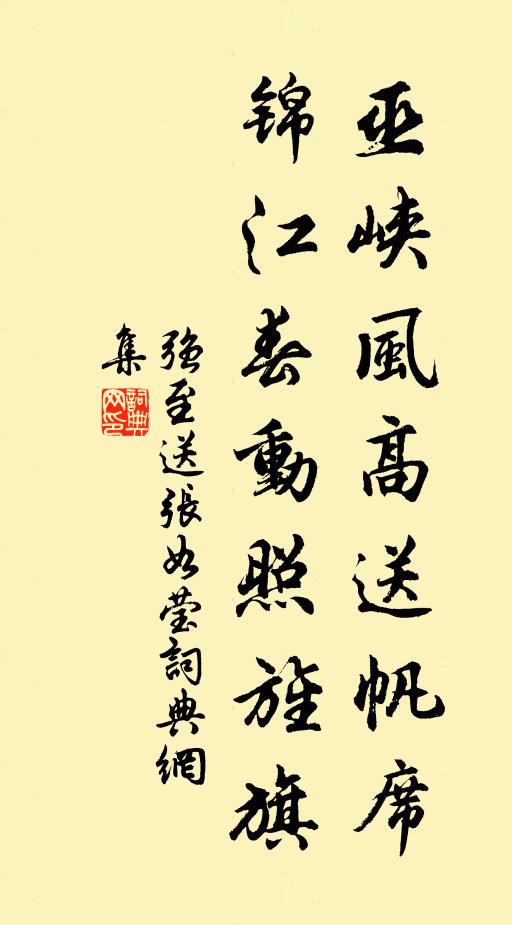 巫峡風高送帆席
锦江春動照旌旗
强至送張如莹詞典網
集
詞典網印